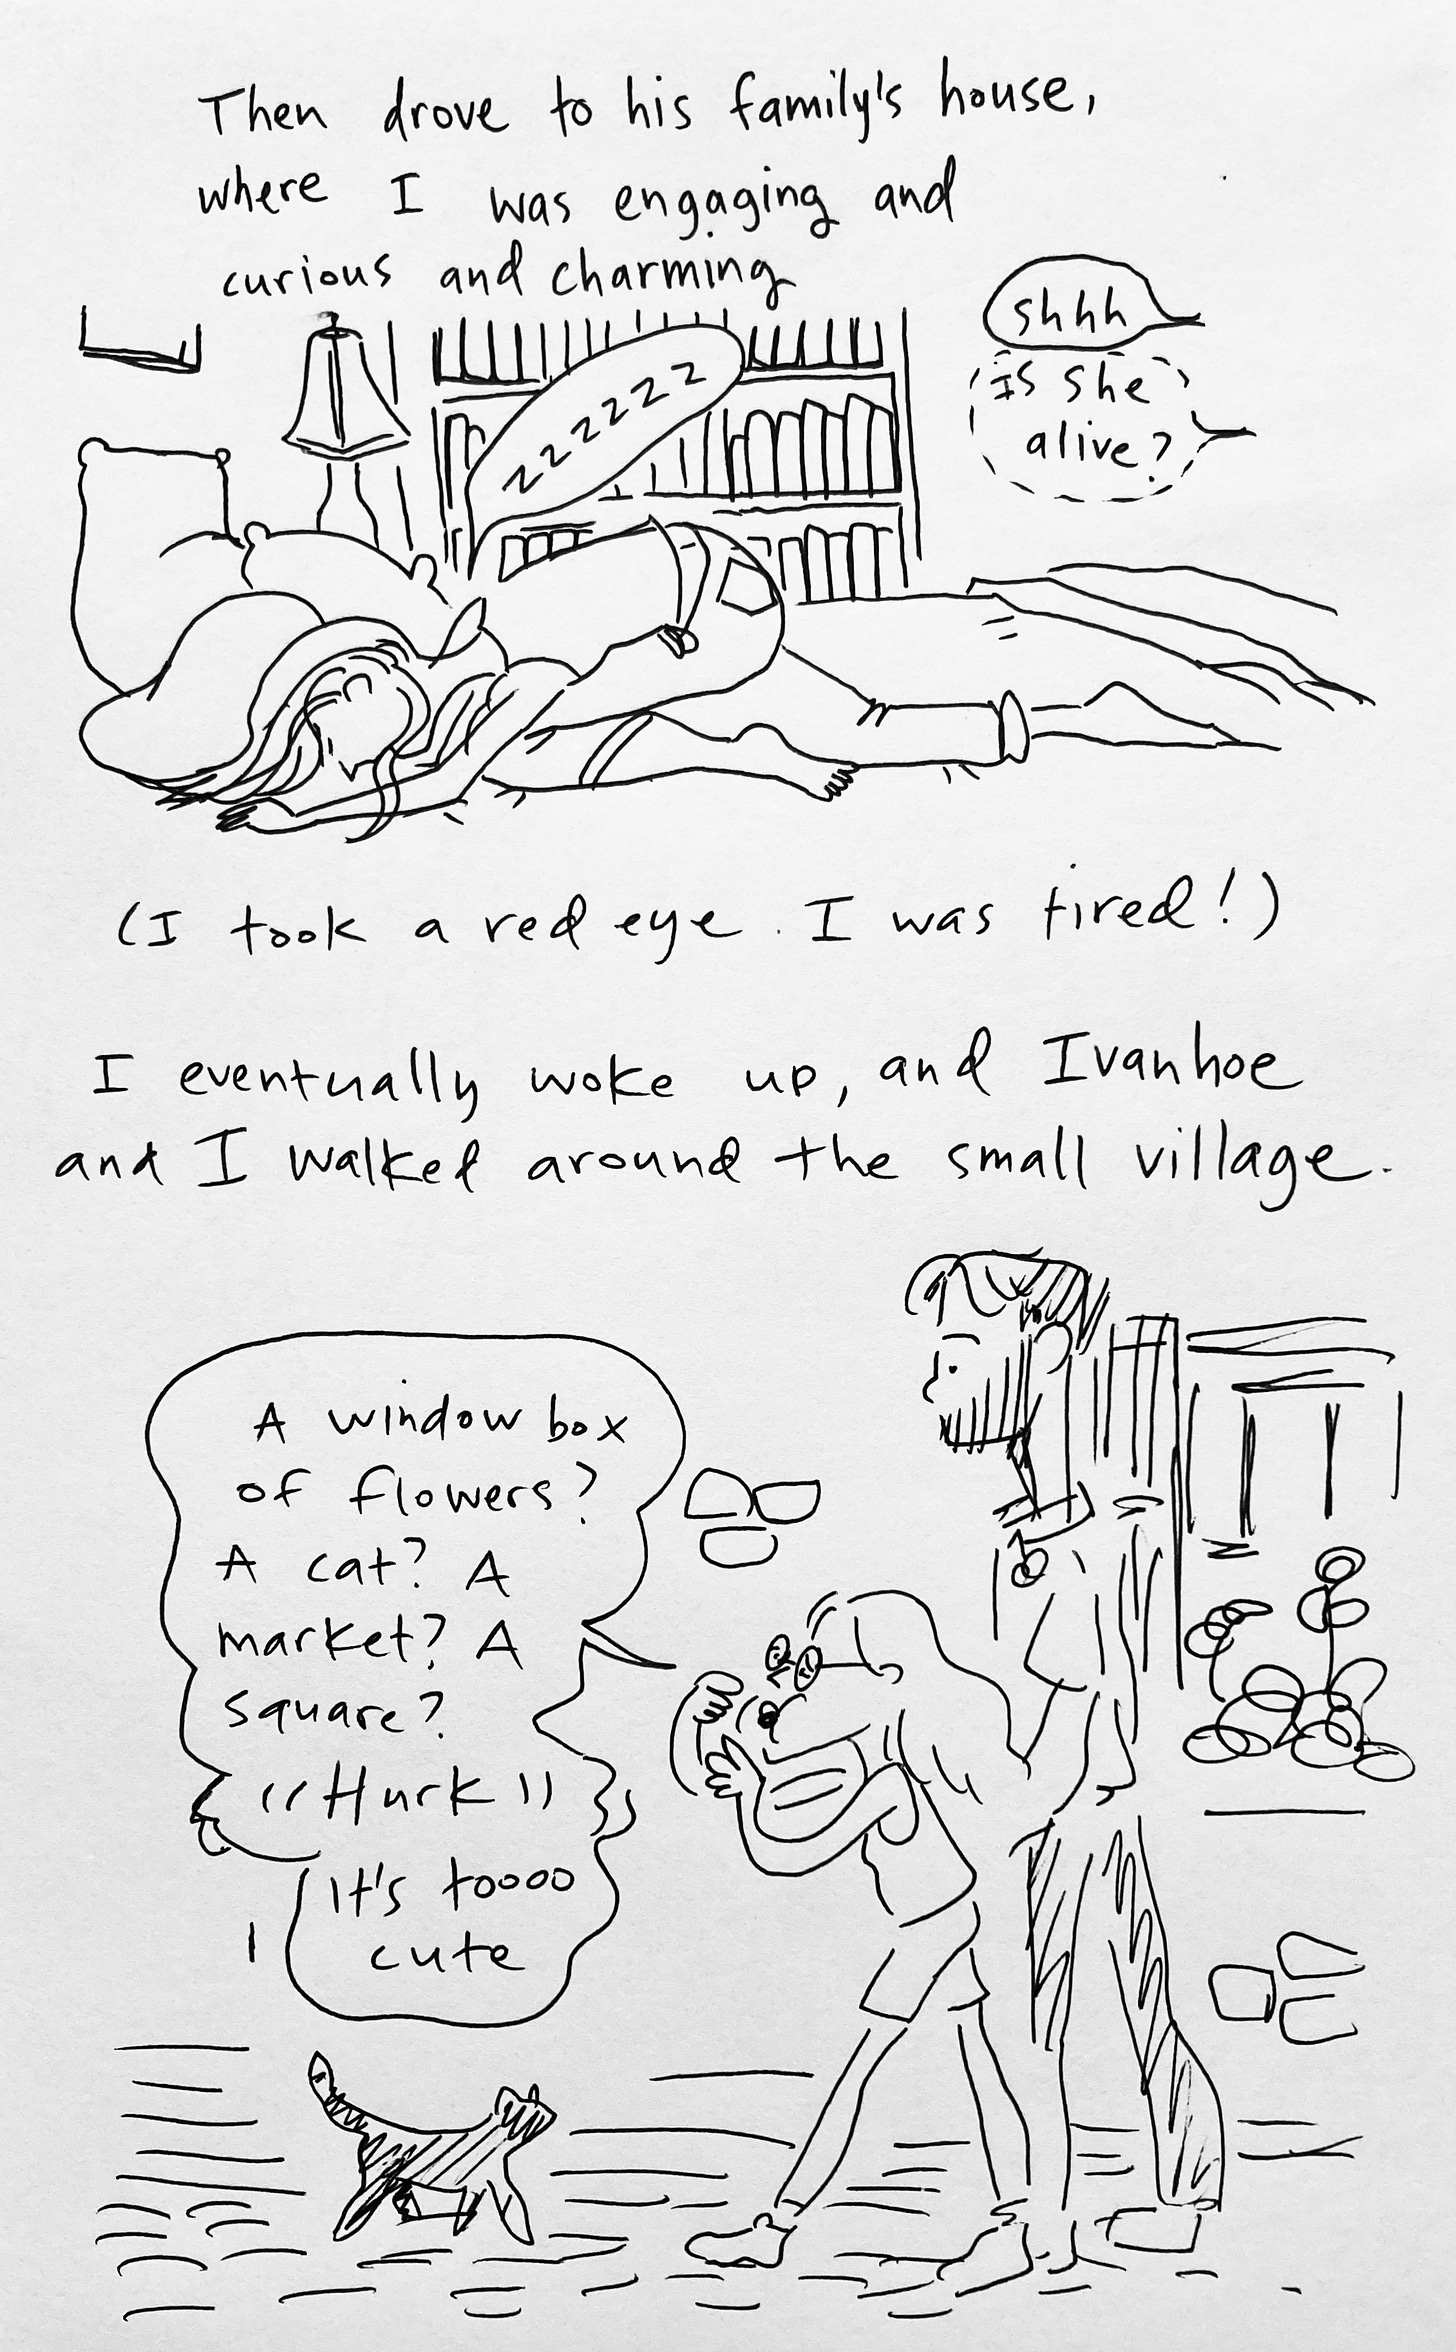 Then drove to his family's house,
where I was engaging and
curious and charming
shhh
is she
alive?
zzzzzz
(I took a red eye. I was tired!)
I eventually woke up, and Ivanhoe
and I walked around the small village.
A window box
of flowers?
A cat? A
market? A
square?
"Hurk"
It's toooo
cute